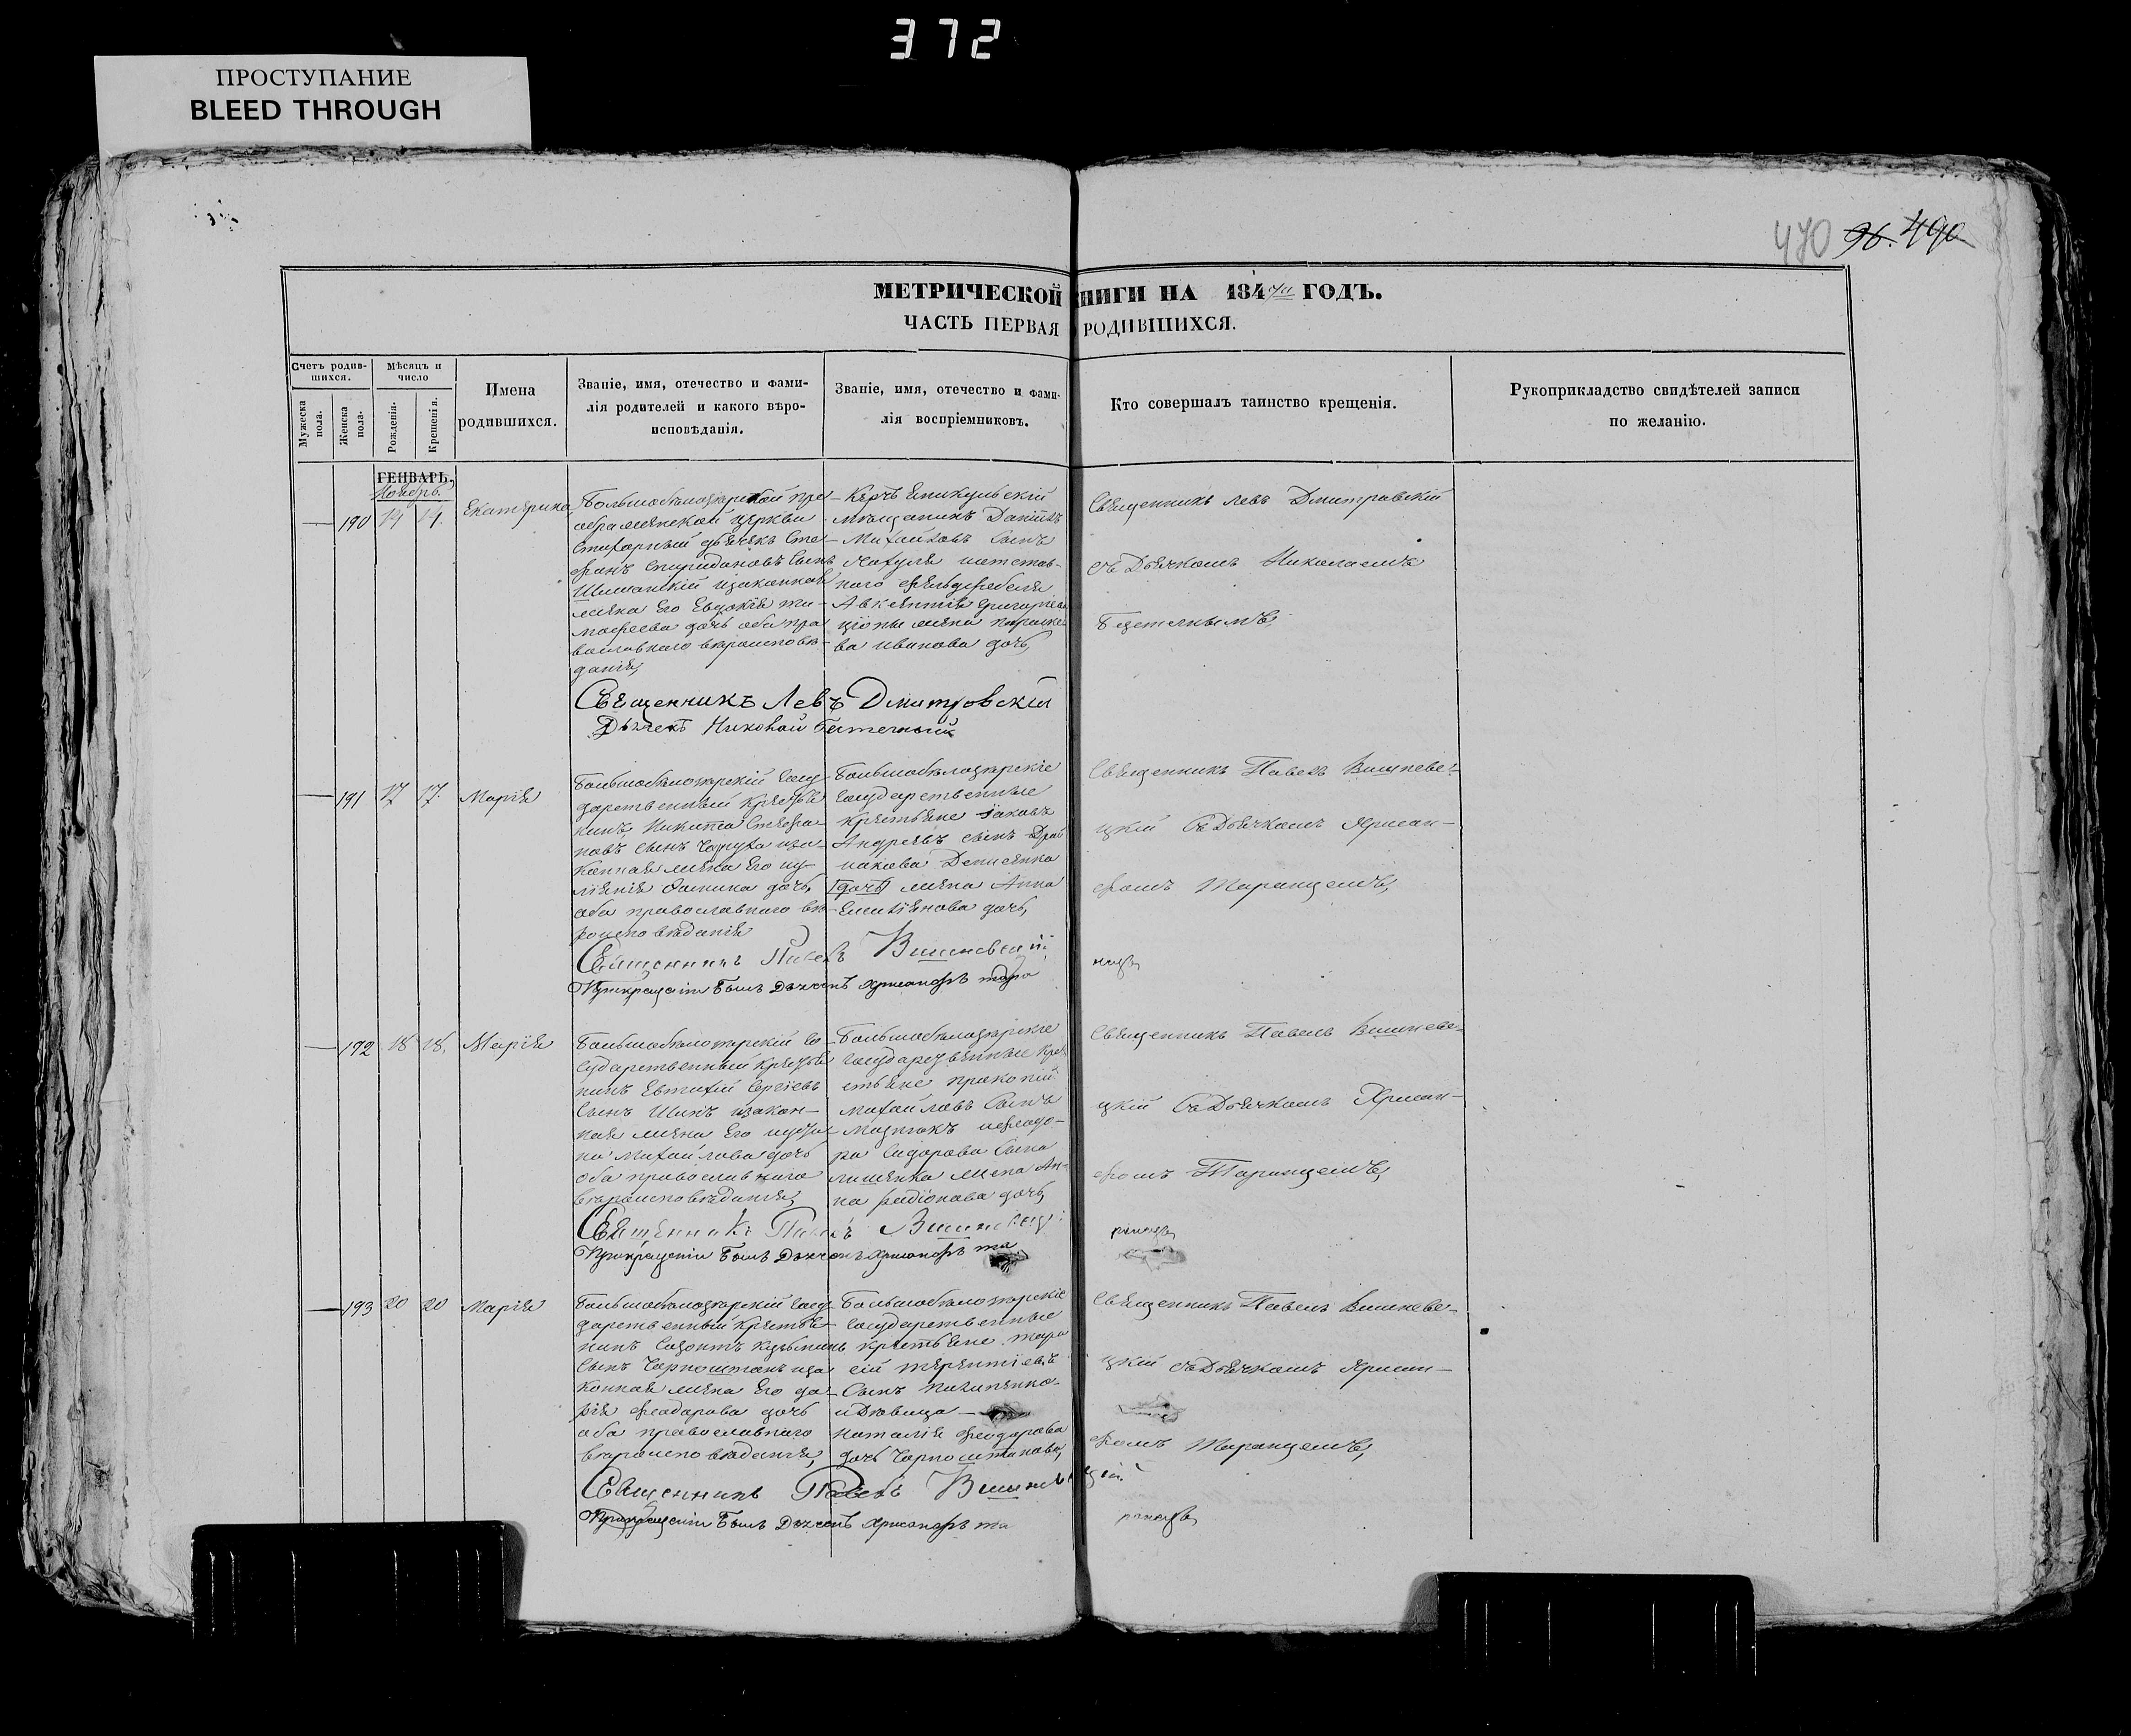 372
ПРОСТУПАНИЕ
BLEED THROUGH
470 96. 490
МЕТРИЧЕСКОЙ КНИГИ НА 184 ГОДЪ.
ЧАСТЬ ПЕРВАЯ РОДИВШИХСЯ.
Счетъ родившихся.
Мужеска пола.
Женска пола.
Мѣсяцъ и число
Рожденія.
Крещенія.
Имена родившихся.
Званіе, имя, отечество и фами-
лія родителей и какого вѣро-
исповѣданія.
Званіе, имя, отечество и фами-
лія воспріемниковъ.
Кто совершалъ таинство крещенія.
Рукоприкладство свидѣтелей записи
по желанію.
ГЕНВАРЬ.
Ноябрь.
190 14 14. Екатерина
Большебѣлозерской пре-
ображенской церкви
стихарный дьячекъ Сте-
фанъ Спиридоновъ сынъ
Шиманскій изаконная
жена его Евдокія ти-
мофеева дочь оба пра
вославнаго вѣроисповѣ-
данія,
Керчь Еникульскій
мѣщанинъ Даніилъ
Михайловъ сынъ
ного фельдфебеля
Авксентія Григорьева
жена параске
ва иванова дочь,
Священникъ Левъ Дмитровскій
съ Дьячкомъ Николаемъ
Священникъ Левъ Дмитровскій
Дьячекъ Николай
191 17 17. Марія
Большебѣлозерскій госу
дарственный крестья
нинъ Никита Стефа-
новъ сынъ изa-
конная жена его
дочь,
оба православнаго вѣ-
роисповѣданія
Большебѣлозерскіе
государственные
крестьяне Іаковъ
Андреевъ сынъ
жена Анна
Емиліянова дочь,
Священникъ Павелъ Вишневе-
цкій съ Дьячкомъ Хрисан-
фомъ Таранцемъ,
Священникъ Павелъ Вишневецкій
Прикрещеніи былъ Дьячекъ Хрисанфъ тара
нецъ
192 18 18. Марія
Большебѣлозерскій го-
сударственный крестья
нинъ Евтихій Сергіевъ
сынъ Шинъ изакон-
ная жена его
на Михайлова дочь
оба православнаго
вѣроисповѣданія,
Большебѣлозерскіе
государственные кре
стьяне прокопій
Михайловъ сынъ
ифеодо-
ра Сидорова сына
жена Ан-
на родіонова дочь,
Священникъ Павелъ Вишневе-
цкій съ Дьячкомъ Хрисан-
фомъ Таранцемъ,
Священникъ Павелъ Вишневецкій
Прикрещеніи былъ Дьячекъ Хрисанфъ та
ранецъ
193 20 20 Марія
Большебѣлозерскій госу
дарственный крестья-
нинъ Созонтъ Кузьминъ
сынъ Чорноштанъ иза
конная жена его да-
рія феодорова дочь
оба православнаго
вѣроисповѣданія,
Большебѣлозерскіе
государственные
крестьяне тара
сій терентіевъ
сынъ пилипенко
и Дѣвица
наталія феодорова
дочь Чорноштанова,
Священникъ Павелъ Вишневе-
цкій съ Дьячкомъ Хрисан-
фомъ Таранцемъ,
Священникъ Павелъ Вишневецкій
Прикрещеніи былъ Дьячекъ Хрисанфъ та
ранецъ